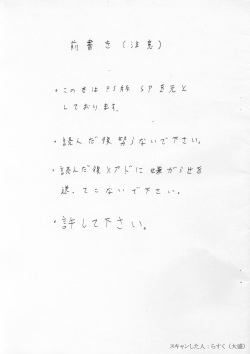 前書き(注意)
・この本はPS版 SPを元と
しております。
・読んだ後怒らないで下さい。
・読んだ後メアドに嫌がらせを
送ってこないで下さい。
・許して下さい。
スキャンした人:らすく(大盛)